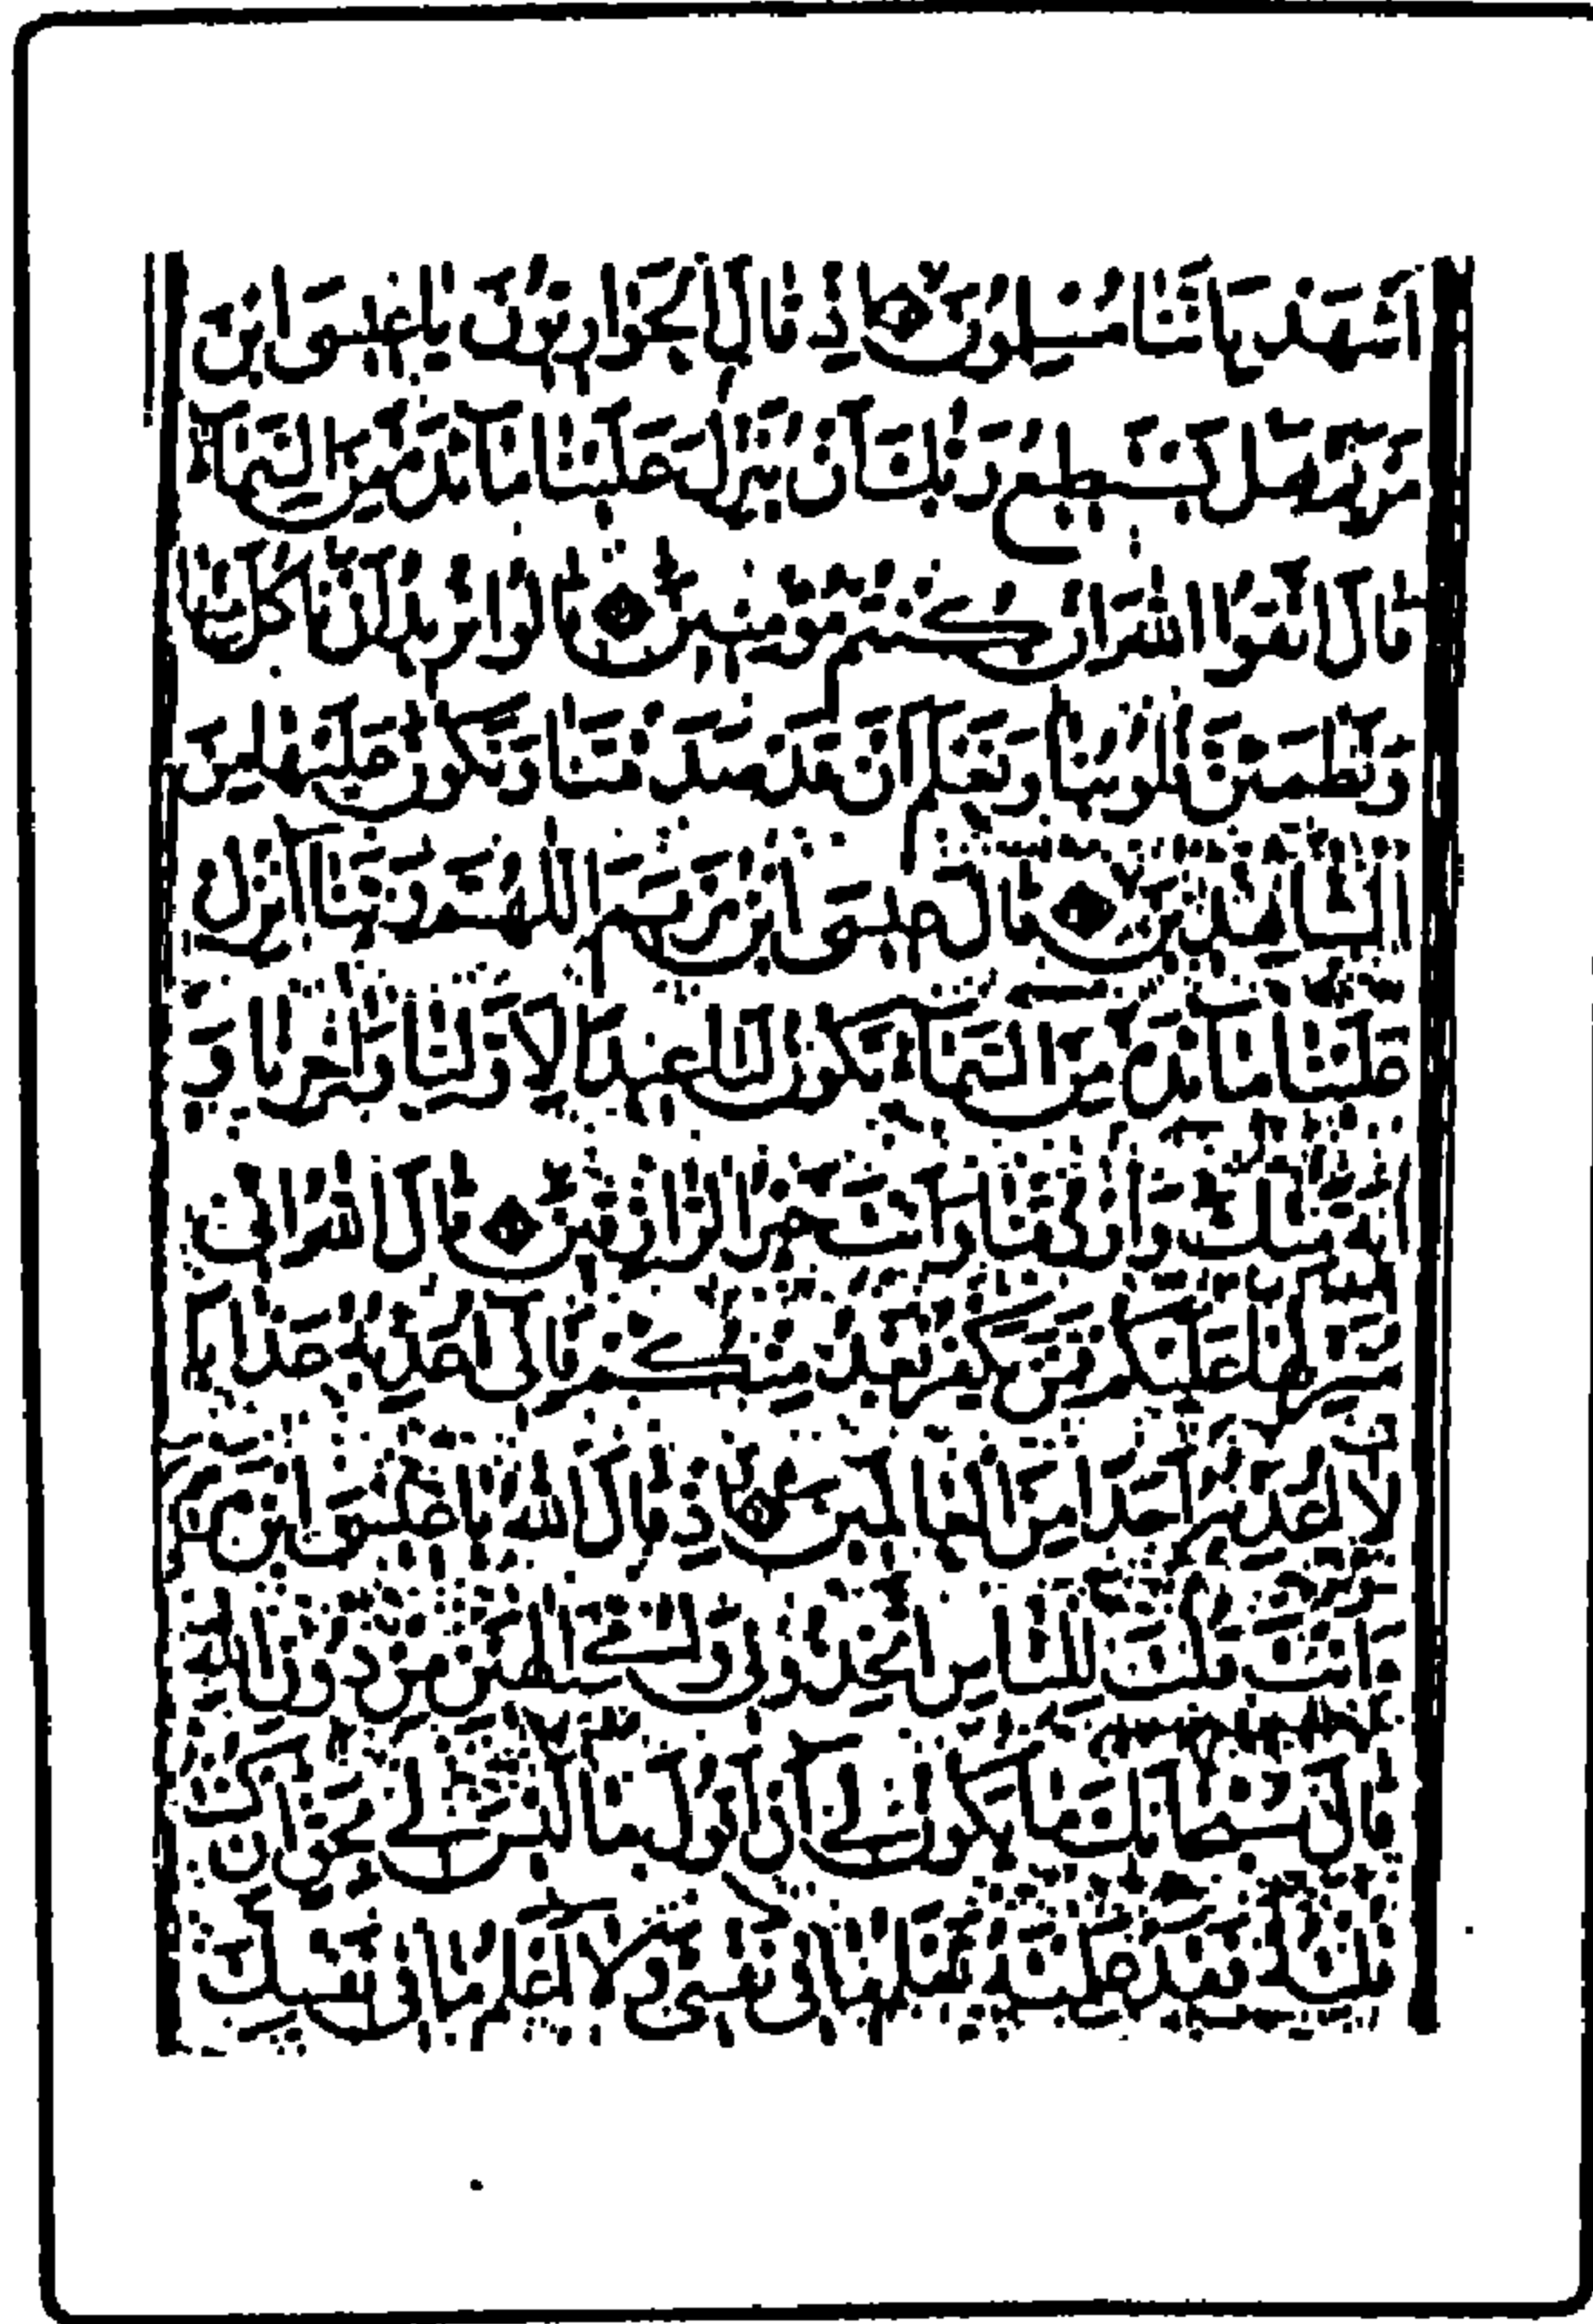 اشْهَدْ بِاَنَّنَا مُسْلِمُونَ اِذْ قَالَ الْحَوَارِيُّونَ يَا عِيسَى ابْنَ
مَرْيَمَ هَلْ يَسْتَطِيعُ رَبُّكَ اَنْ يُنَزِّلَ عَلَيْنَا مَائِدَةً مِنَ السَّمَاءِ
قَالَ اتَّقُوا اللّٰهَ اِنْ كُنْتُمْ مُؤْمِنِينَ قَالُوا نُرِيدُ اَنْ نَاْكُلَ مِنْهَا
وَتَطْمَئِنَّ قُلُوبُنَا وَنَعْلَمَ اَنْ قَدْ صَدَقْتَنَا وَنَكُونَ عَلَيْهَا مِنَ
الشَّاهِدِينَ قَالَ عِيسَى ابْنُ مَرْيَمَ اللّٰهُمَّ رَبَّنَا اَنْزِلْ
عَلَيْنَا مَائِدَةً مِنَ السَّمَاءِ تَكُونُ لَنَا عِيدًا لِاَوَّلِنَا وَاٰخِرِنَا وَ
اٰيَةً مِنْكَ وَارْزُقْنَا وَاَنْتَ خَيْرُ الرَّازِقِينَ قَالَ اللّٰهُ اِنِّي
مُنَزِّلُهَا عَلَيْكُمْ فَمَنْ يَكْفُرْ بَعْدُ مِنْكُمْ فَاِنِّي اُعَذِّبُهُ عَذَابًا
لَا اُعَذِّبُهُ اَحَدًا مِنَ الْعَالَمِينَ وَاِذْ قَالَ اللّٰهُ يَا عِيسَى ابْنَ مَرْيَمَ
ءَاَنْتَ قُلْتَ لِلنَّاسِ اتَّخِذُونِي وَاُمِّيَ اِلٰهَيْنِ مِنْ دُونِ اللّٰهِ
قَالَ سُبْحَانَكَ مَا يَكُونُ لِي اَنْ اَقُولَ مَا لَيْسَ لِي بِحَقٍّ اِنْ كُنْتُ
قُلْتُهُ فَقَدْ عَلِمْتَهُ تَعْلَمُ مَا فِي نَفْسِي وَلَا اَعْلَمُ مَا فِي نَفْسِكَ